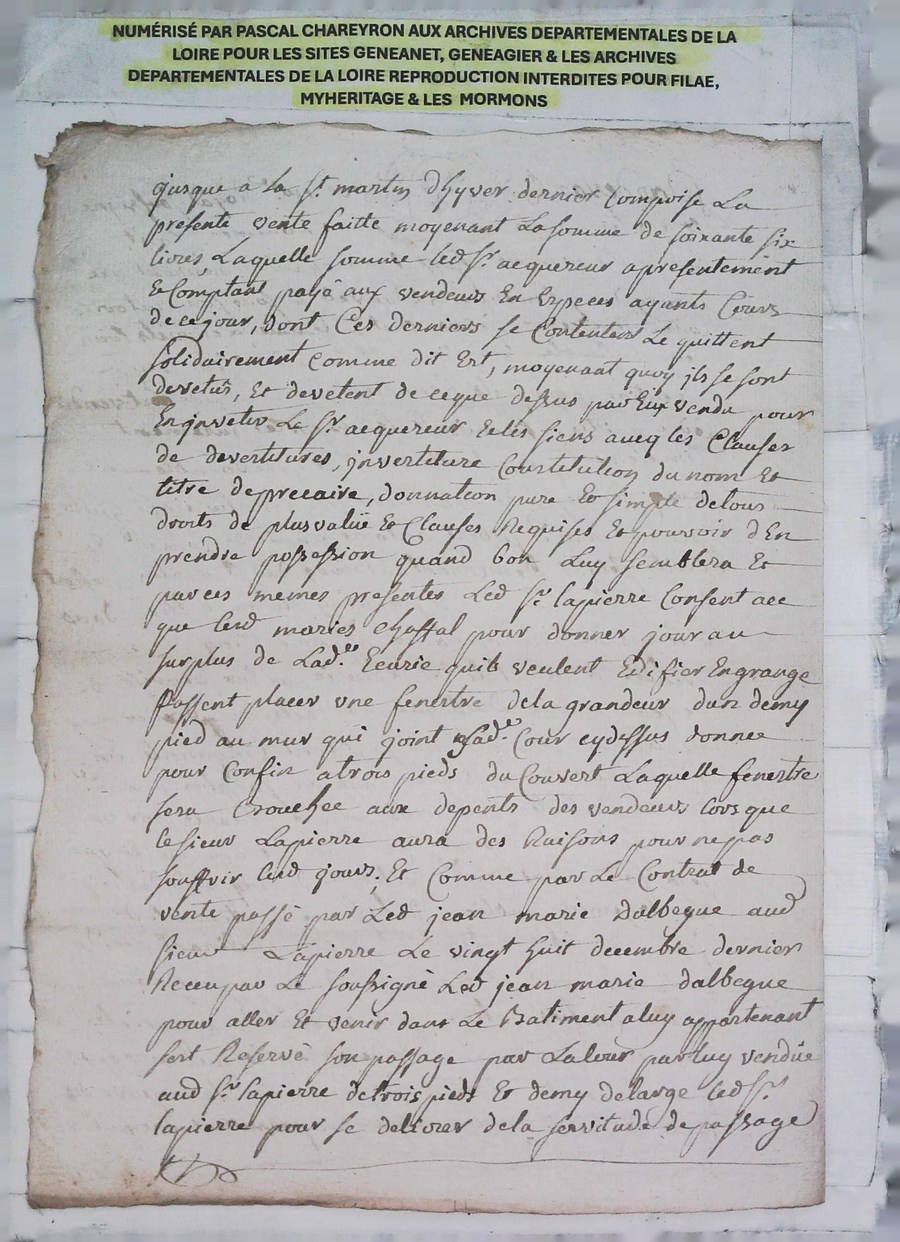 NUMÉRISÉ PAR PASCAL CHAREYRON AUX ARCHIVES DEPARTEMENTALES DE LA
LOIRE POUR LES SITES GENEANET, GENEAGIER & LES ARCHIVES
DEPARTEMENTALES DE LA LOIRE REPRODUCTION INTERDITES POUR FILAE,
MYHERITAGE & LES MORMONS
jusque a la St. martin dhyver dernier Compoise La
presente vente faitte moyenant La somme de soixante six
livres, Laquelle somme led Sr. acquereur apresentement
Et Comptant payé aux vendeurs En Especes ayants Cours
de ce jour, dont Ces derniers se Contentent Le quittent
solidairement Comme dit Est, moyenant quoy ils se sont
devetus, Et devetent de ceque dessus par Eux vendu pour
En investir Le Sr. acquereur Et les siens avecq les Clauses
de devertitures, invertiture Constitution du nom Et
titre de precaire, donnation pure Et simple de tous
droits de plus valüe Et Clauses Requises Et pouvoir dEn
prendre possession quand bon Luy semblera Et
par ces memes presentes Led Sr. lapierre Consent a ce
que lesd mariés Chaffal pour donner jour au
surplus de Lad.e Ecurie quils veulent Edifier En grange
fassent placer vne fenestre de la grandeur dun demy
pied au mur qui joint Lad.e Cour cy dessus donnee
pour Confin a trois pieds du Couvert Laquelle fenestre
sera Bouchee aux depents des vendeurs lors que
le sieur Lapierre aura des Raisons pour ne pas
souffrir lesd jours; Et Comme par Le Contrat de
vente passé par Led jean marie dalbegue aud
sieur Lapierre Le vingt huit decembre dernier
Receu par Le soussigné Led jean marie dalbegue
pour aller Et venir dans Le Batiment a luy appartenant
sest Reservé son passage par La Cour par luy vendüe
aud Sr. lapierre de trois pieds Et demy de large led Sr.
lapierre pour se delivrer de la servitude de passage